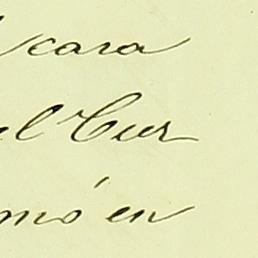 cara
el Cur
mó en